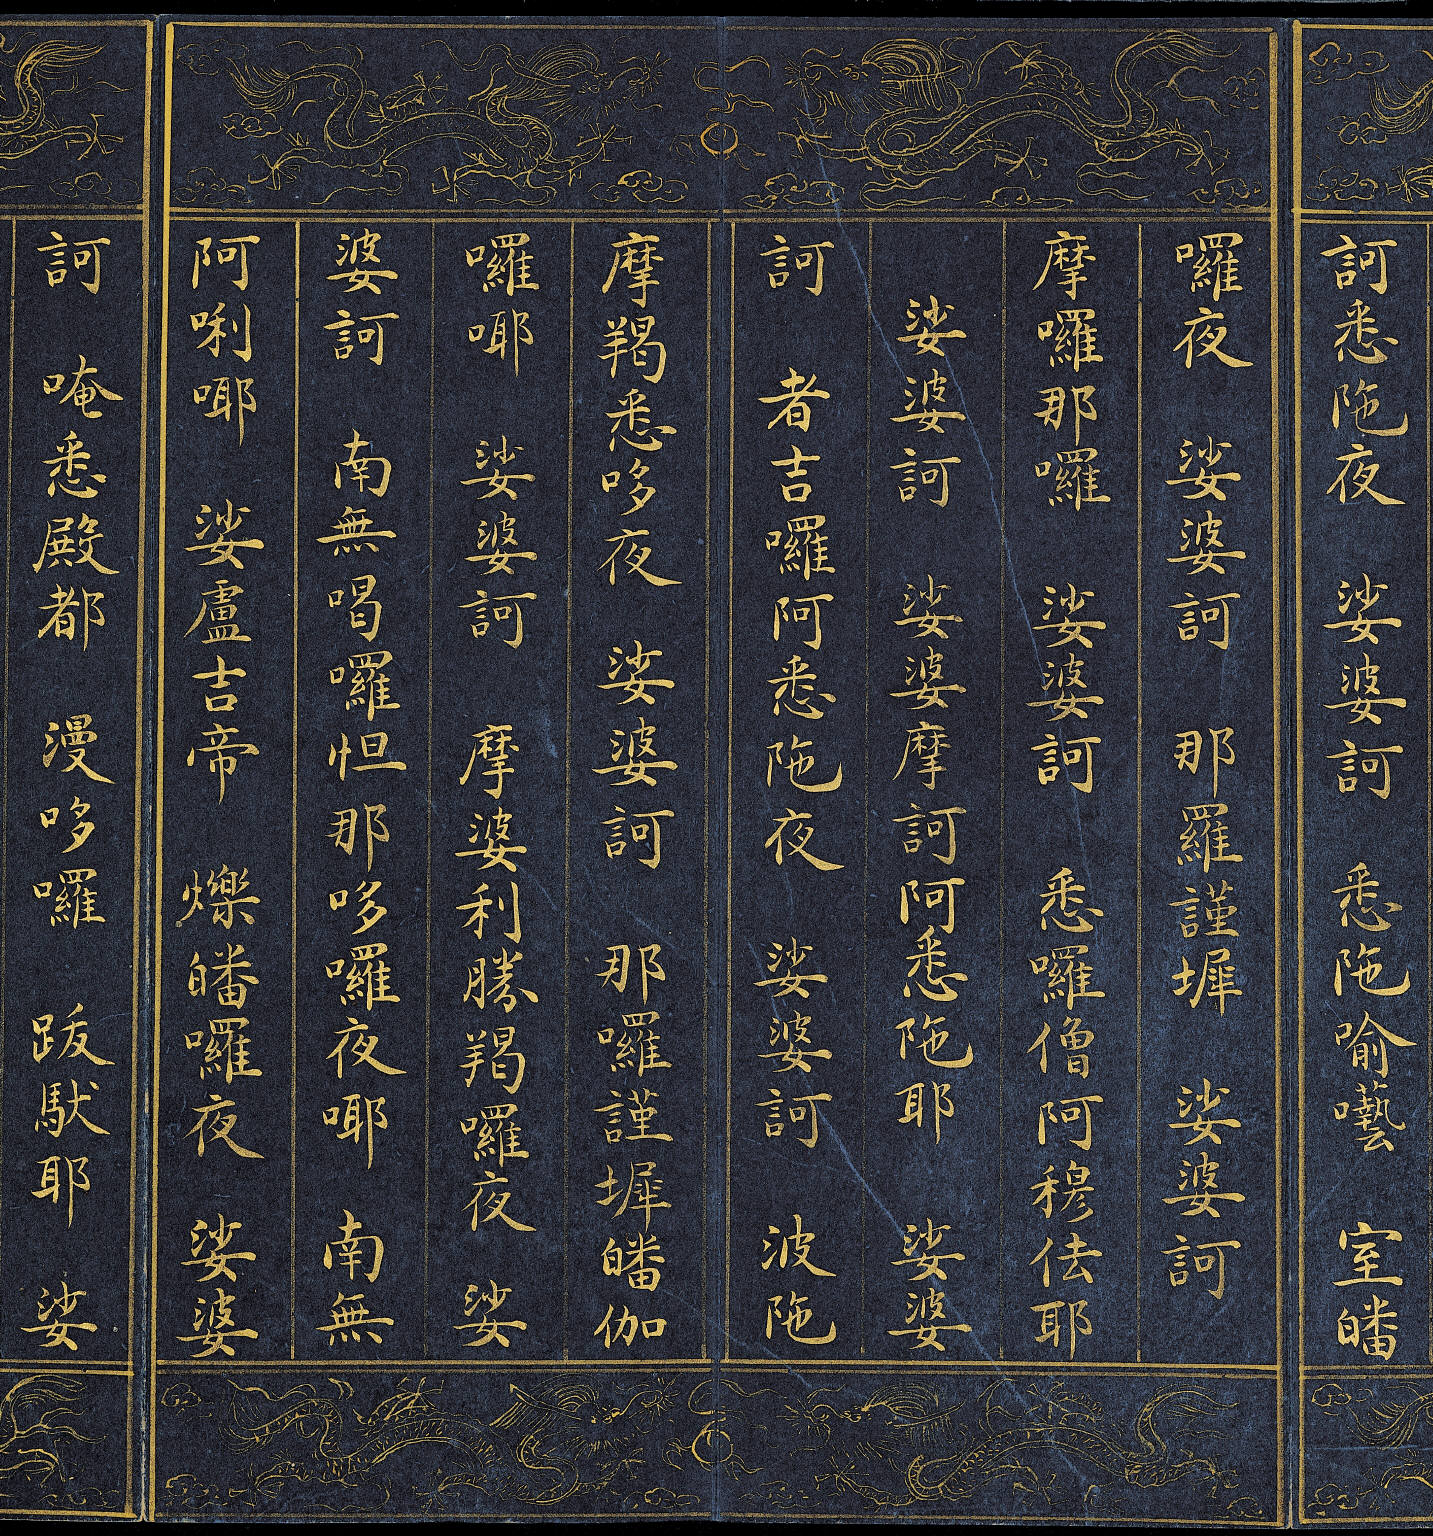 訶悉陁夜　娑婆訶　悉陁喻囈　室皤
囉夜　娑婆訶　那羅謹墀　娑婆訶
摩囉那囉　娑婆訶　悉囉僧阿穆佉耶
娑婆訶　娑婆摩訶阿悉陁耶　娑婆
訶　者吉囉阿悉陁夜　娑婆訶　波陁
摩羯悉哆夜　娑婆訶　那囉謹墀皤伽
囉㖿　娑婆訶　摩婆利勝羯囉夜　娑
婆訶　南無喝囉怛那哆囉夜㖿　南無
阿唎㖿　娑盧吉帝　爍皤囉夜　娑婆
訶　唵悉殿都　漫哆囉　跋馱耶　娑